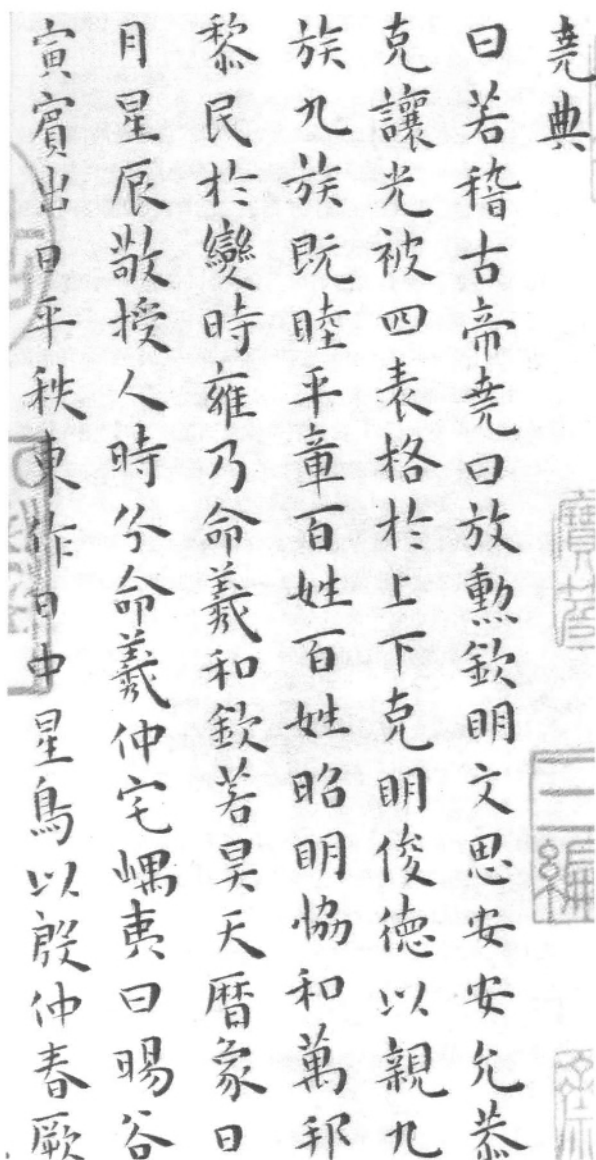 堯典
曰若稽古帝堯曰放勳欽明文思安安允恭
克讓光被四表格於上下克明俊德以親九
族九族既睦平章百姓百姓昭明協和萬邦
黎民於變時雍乃命羲和欽若昊天曆象日
月星辰敬授人時分命羲仲宅嵎夷曰暘谷
寅賓出日平秩東作日中星鳥以殷仲春厥
三編